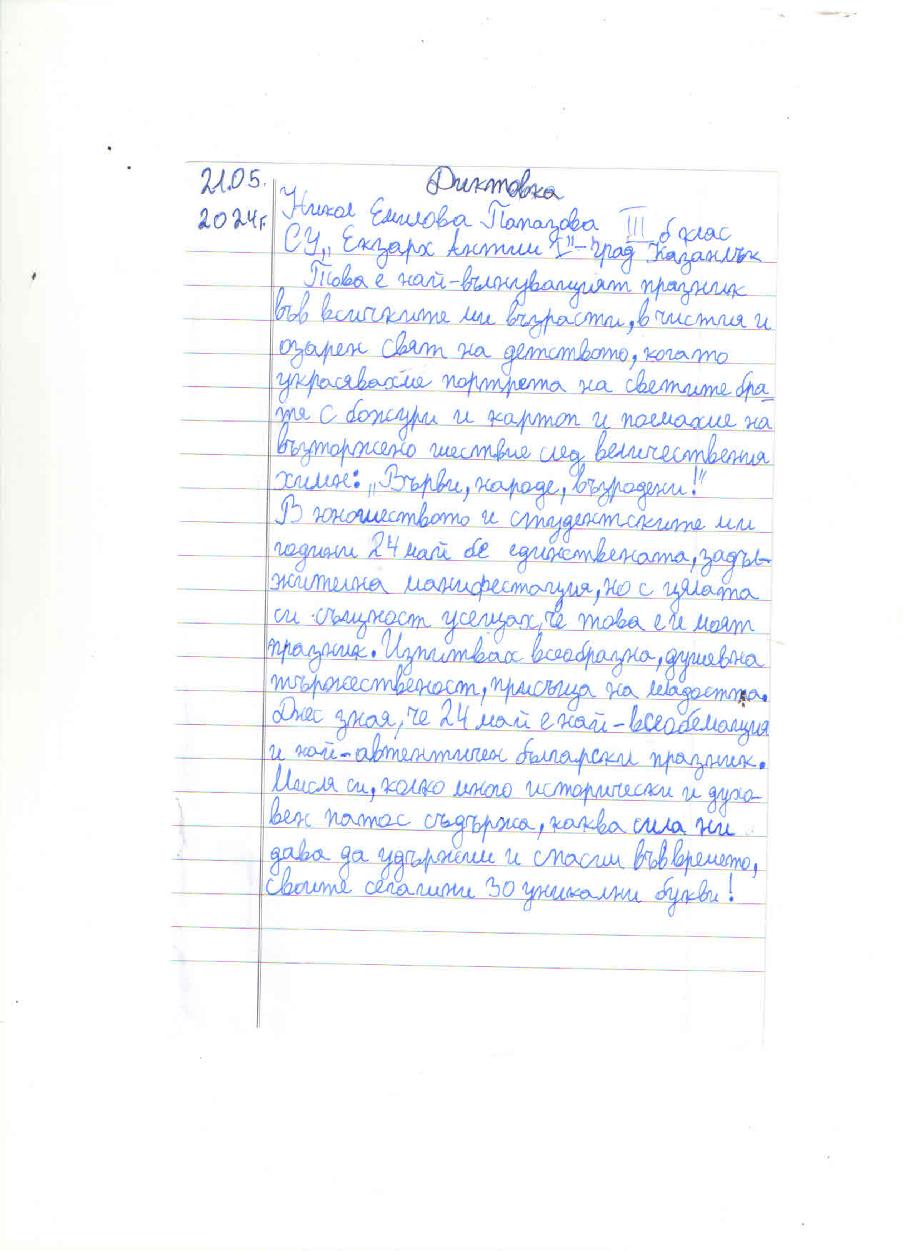 Диктовка
21.05.
2024г.
Никол Емилова Папазова III б клас
СУ „Екзарх Антим I" – град Казанлък
Това е най-вълнуващият празник
във всичките ми възрасти, в чистия и
озарен свят на детството, когато
украсявахме портрета на светите бра-
тя с божури и картоп и поемахме на
възторжено шествие след величествения
химн: „Върви, народе, възродени!"
В юношеството и студентските ми
години 24 май бе единствената, задъл-
жителна манифестация, но с цялата
си същност усещах, че това е и моят
празник. Изпитвах всеобразна, душевна
тържественост, присъща на младостта.
Днес зная, че 24 май е най-всеобемащия
и най-автентичен български празник.
Мисля си, колко много исторически и духо-
вен патос съдържа, каква сила ни
дава да удържим и спасим във времето,
своите сегашни 30 уникални букви!